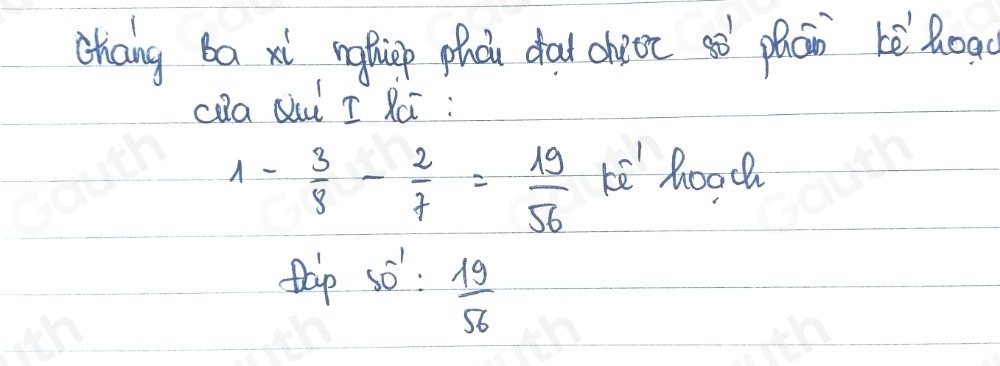 Tháng Ba xí nghiệp phải đạt được số phần kế hoạc
của Quí I là :
1 - 3/8 - 2/7 = 19/56 kế hoạch
Đáp số : 19/56